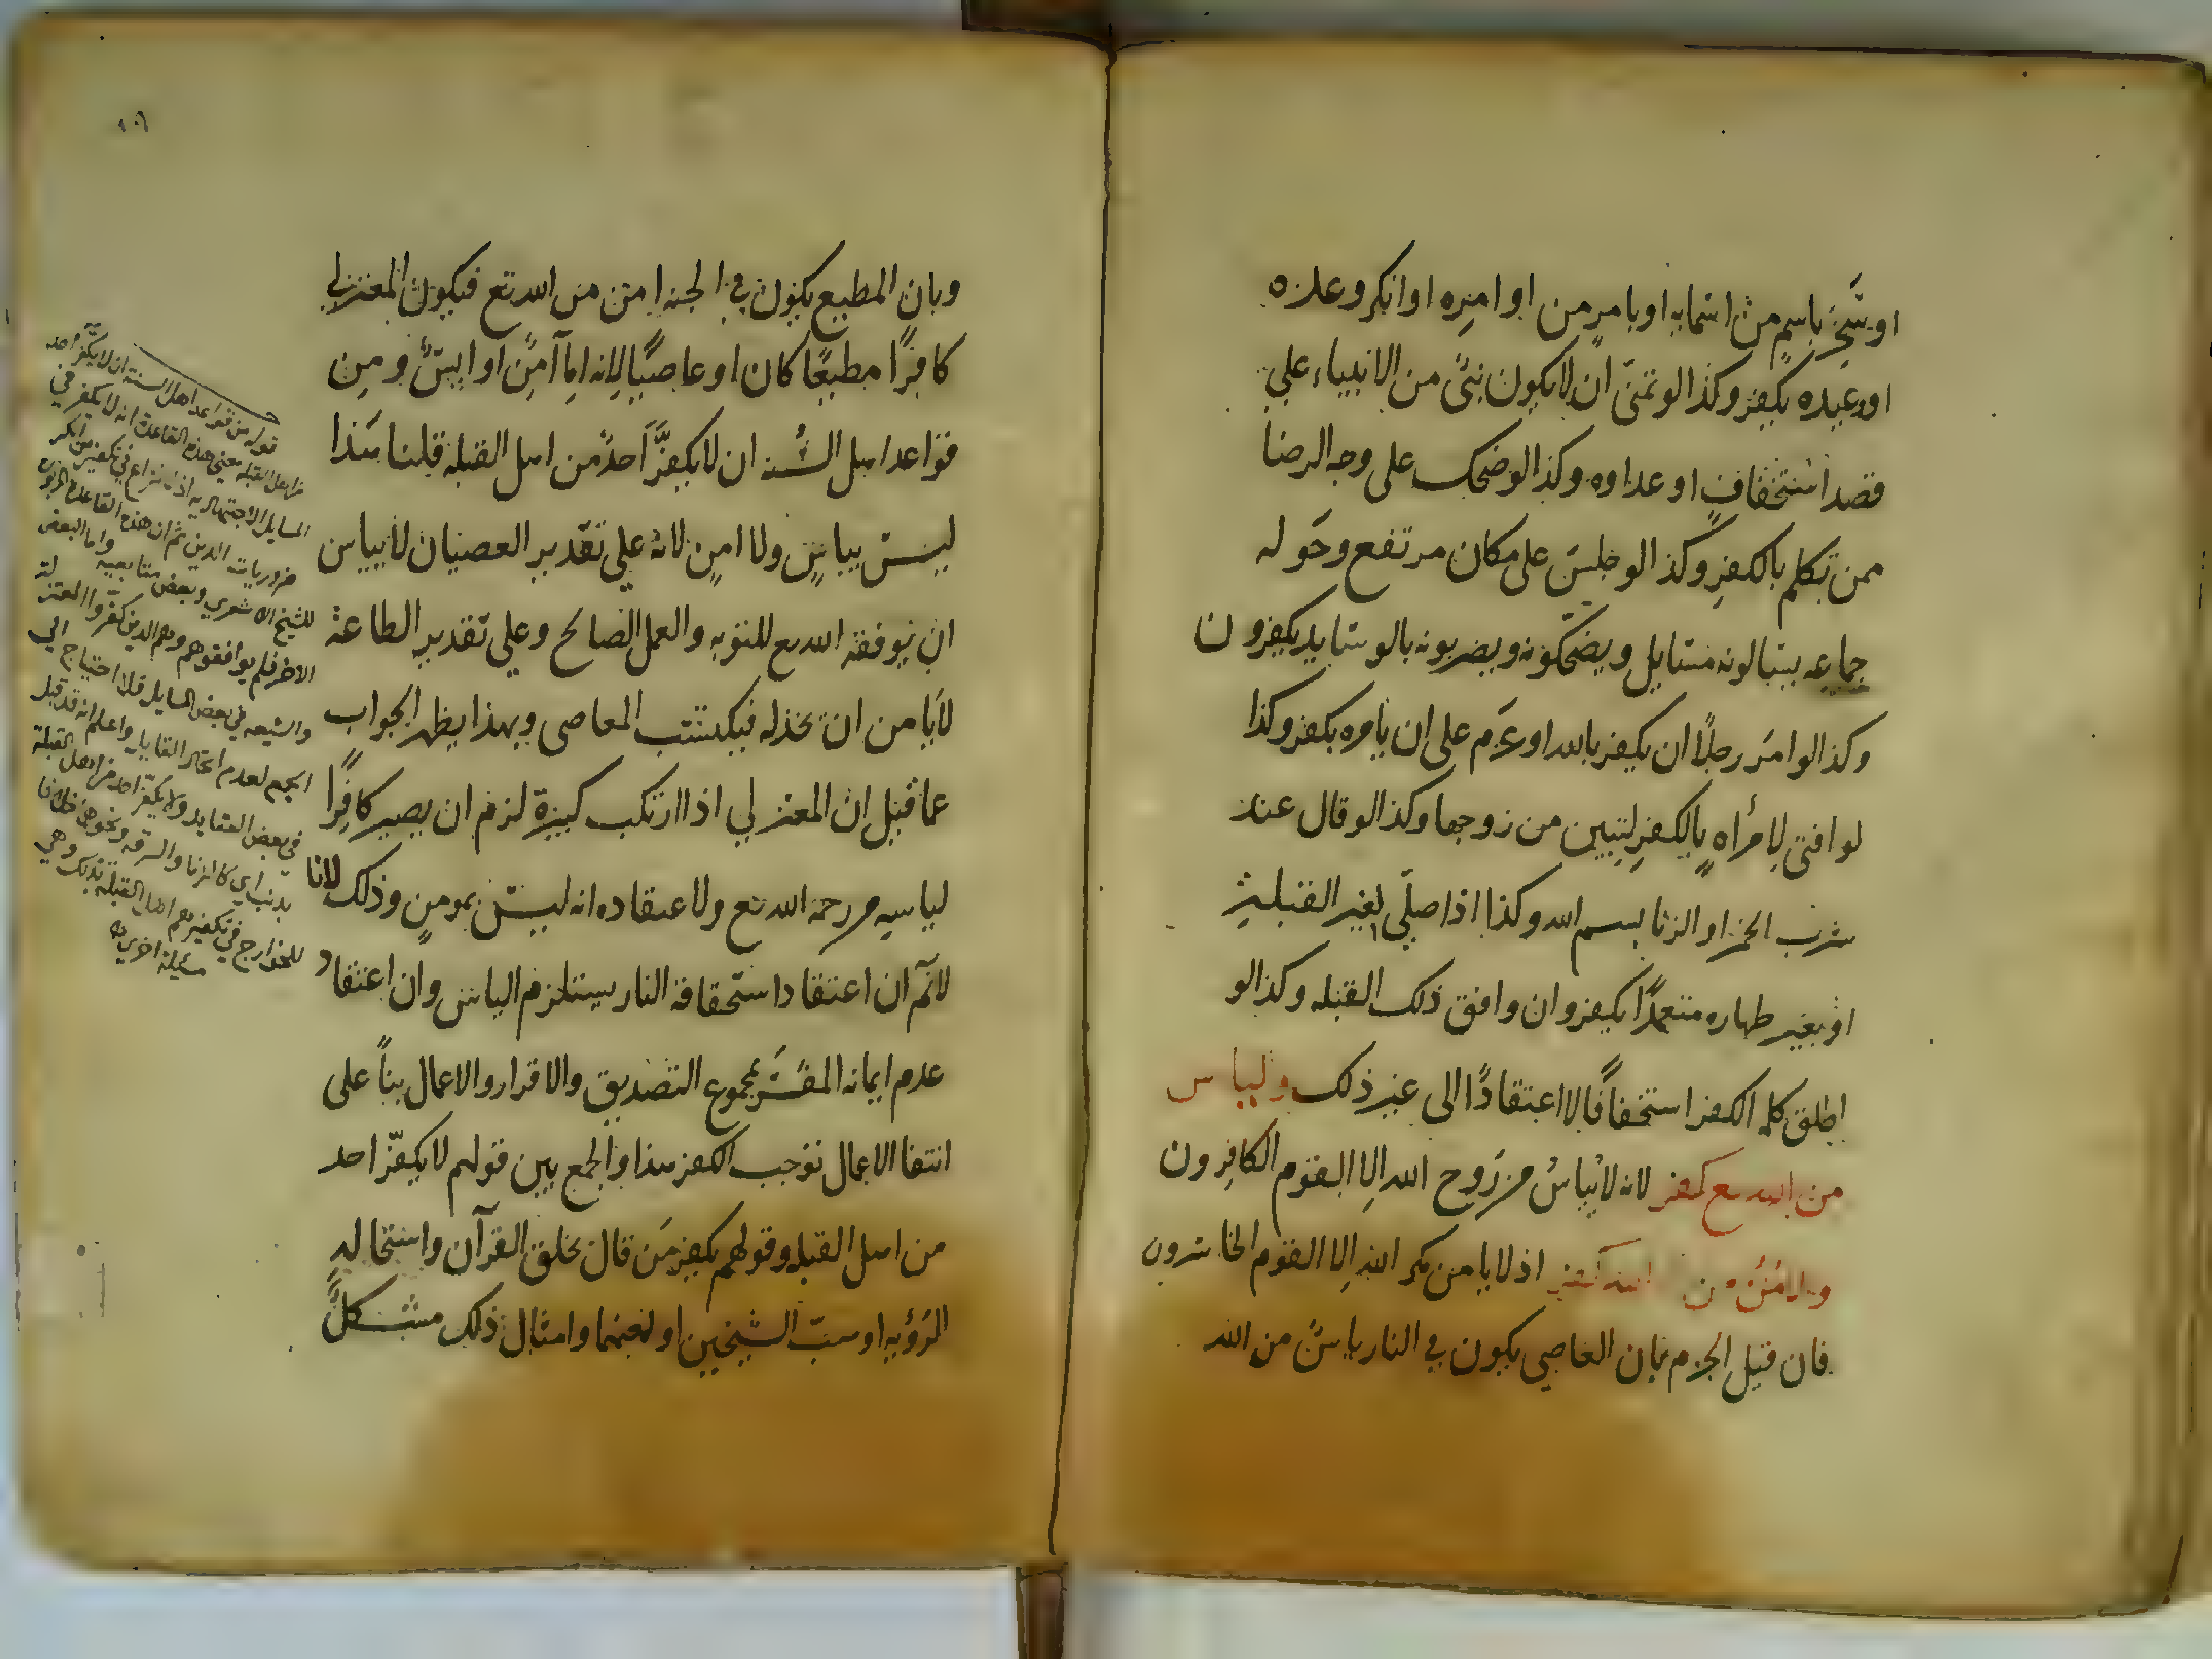 او سخر باسم من اسمايه او بامر من اوامره او انكر وعده
او وعيده يكفر وكذا لو تمنى ان لا يكون نبى من الانبياء على
قصد استخفاف او عداوه وكذا لو ضحك على وجه الرضا
ممن تكلم بالكفر وكذا لو جلس على مكان مرتفع وحوله
جماعه يسالونه مسايل ويضحكونه ويضربونه بالوسايد يكفرون
وكذا لو امر رجلاً ان يكفر بالله او عزم على ان يامره بكفر وكذا
لو افتى لامراه بالكفر لتبين من زوجها وكذا لو قال عند
شرب الخمر او الزنا بسم الله وكذا اذا صلى لغير القبلة
او بغير طهاره متعمداً يكفر وان وافق ذلك القبله وكذا لو
اطلق كلمه الكفر استخفافًا لا اعتقادًا الى غير ذلك والياس
من الله تع كفر لانه لا ييأس من روح الله الا القوم الكافرون
والامن من الله كفر اذ لا يامن مكر الله الا القوم الخاسرون
فان قيل الجزم بان العاصي يكون في النار ياس من الله
١٠٦
وبان المطيع يكون في الجنه امن من الله تع فيكون المعتزلي
كافرًا مطيعًا كان او عاصيًا لانه اما آمن او ايس ومن
قواعد اهل السنه ان لا يكفر احد من اهل القبله قلنا هذا
ليس بياس ولا امن لانه على تقدير العصيان لا ييأس
ان يوفقه الله تع للتوبه والعمل الصالح وعلى تقدير الطاعة
لا يامن ان يخذله فيكتسب المعاصى وبهذا يظهر الجواب
عما قيل ان المعتزلي اذا ارتكب كبيرة لزم ان يصير كافرًا
لياسه من رحمه الله تع ولاعتقاده انه ليس بمومن وذلك لانا
لانم ان اعتقاد استحقاقه النار يستلزم الياس وان اعتقاد
عدم ايمانه المفسَّر بمجموع التصديق والاقرار والاعمال بناً على
انتفا الاعمال يوجب الكفر هذا والجمع بين قولهم لا يكفّر احد
من اهل القبله وقولهم بكفر من قال بخلق القرآن واستحاله
الرؤيه او سبّ الشيخين او لعنهما وامثال ذلك مشكل
قوله من قواعد اهل السنة ان لا يكفّر احد
من اهل القبله معنى هذه القاعدة انه لا يكفر في
المسايل الاجتهاديه اذ لا نزاع في تكفير من انكر
ضروريات الدين ثم ان هذه القاعدة
للشيخ الاشعري وبعض متابعيه واما البعض
الاخر فلم يوافقوهم وهم الذين كفّروا المعتزلة
والشيعه في بعض المسايل فلا احتياج الى
الجمع لعدم اتحاد القايل واعلم انه قد قيل
في بعض العقايد ولا يكفّر احد من اهل القبلة
بذنب اي كالزنا والسرقه ونحوهما خلافا
للخوارج في تكفيرهم اهل القبله بذلك وهي
مسيلة اخرى